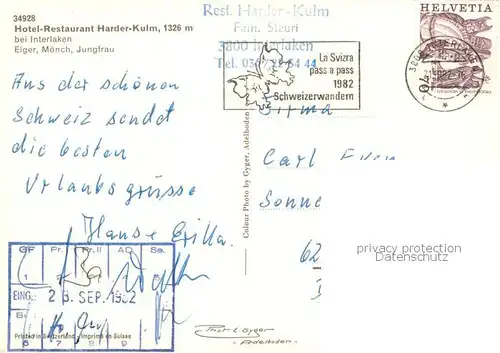 34928
Hotel-Restaurant Harder-Kulm, 1326 m
bei Interlaken
Eiger, Mönch, Jungfrau
Rest. Harder-Kulm
Fam. Sleuri
3800 Interlaken
Tel. 036 22 34 44
La Svizra
pass a pass
1982
Schweizerwandern
HELVETIA
3800 INTERLAKEN
Aus der schönen
Schweiz sendet
die besten
Urlaubsgrüsse
Firma
Carl
Sonne
62
Colour Photo by Gyger, Adelboden
GF Fr. Fr.II AD Se.
EING.: 2 3. SEP. 1982
6 7 8 9
Printed in Switzerland - Imprimé en Suisse
Gyger
Adelboden
privacy protection
Datenschutz